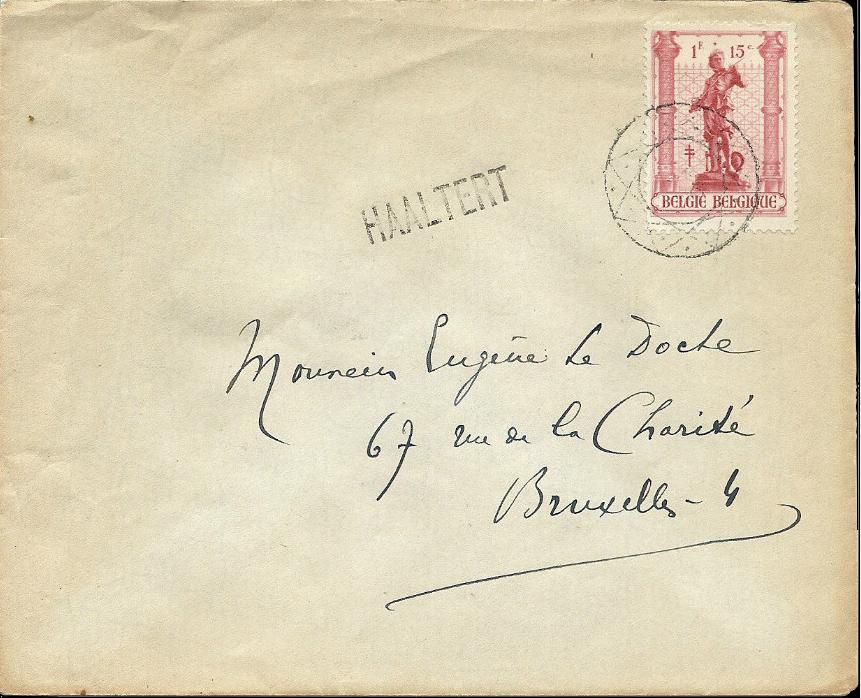 1F 15c
BELGIË BELGIQUE
HAALTERT
Monsieur Eugène Le Docte
67 rue de la Charité
Bruxelles - 4